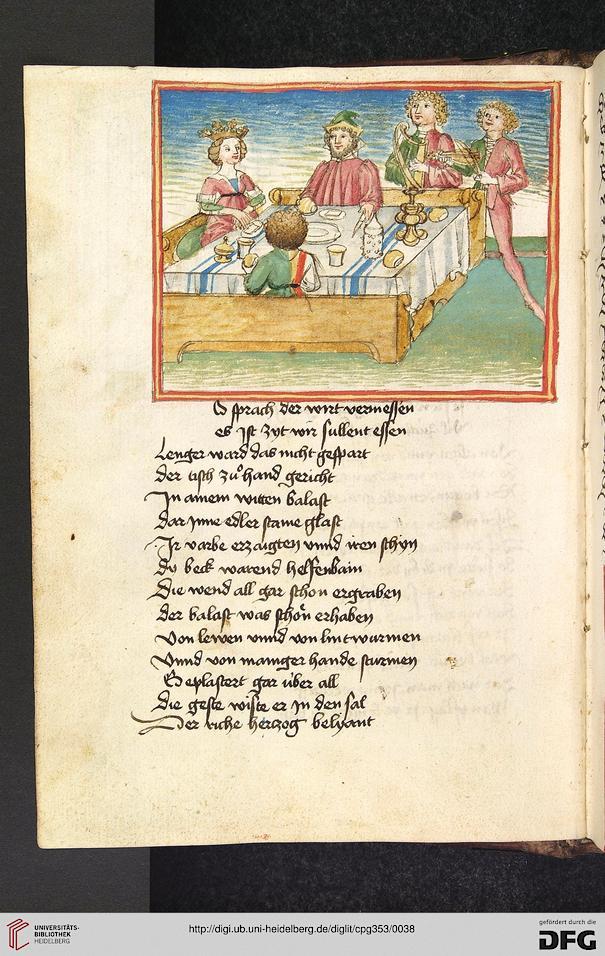 O sprach der wirt vermessen
es Ist zyt wir sullent essen
Lenger ward das nicht gespart
der tisch zů hand gericht
In ainem witten balast
Dar Inne edler staine glast
Ir varbe erzaigten vnnd iren schyn
Dy beck warend helfenbain
Die wend all gar schon ergraben
der balast was schön erhaben
Von lewen vnnd von lintwurmen
Vnnd von mainger hande sturmen
Geplastert gar über all
die geste wiste er In den sal
Der riche herczog belyant
UNIVERSITÄTS-
BIBLIOTHEK
HEIDELBERG
http://digi.ub.uni-heidelberg.de/diglit/cpg353/0038
gefördert durch die
DFG